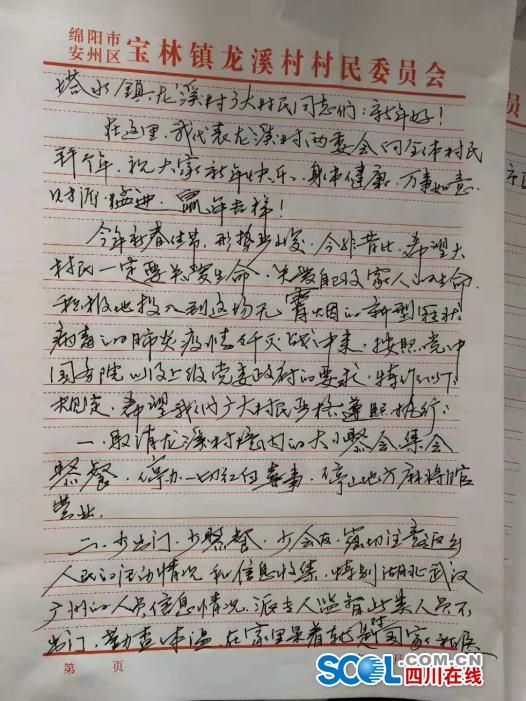 绵阳市
安州区 宝林镇龙溪村村民委员会
塔水镇龙溪村广大村民同志们：新年好！
在这里，我代表龙溪村两委会向全体村民
拜个年，祝大家新年快乐、身体健康、万事如意、
财源猛进、鼠年吉祥！
今年新春佳节，形势，今非昔比，希望大
村民一定要关爱生命，关爱自己及家人的生命，
积极地投入到这场无霄烟的新型冠状
病毒的肺炎疫情歼灭战中来，按照党中
国务院以及上级党委政府的要求，特作以下
规定，希望我们广大村民严格遵照执行：
一、取消龙溪村境内的大小聚会集会
聚餐，停办一切红白喜事，停止地方麻将馆
营业。
二、少出门，少聚餐，少会友，密切注意返乡
人员的活动情况和信息收集，特别湖北武汉
广州的人员信息情况，派专人监督此类人员不
出门，勤查体温，在家里呆着就是对国家和
第 页
SCOL.COM.CN
四川在线